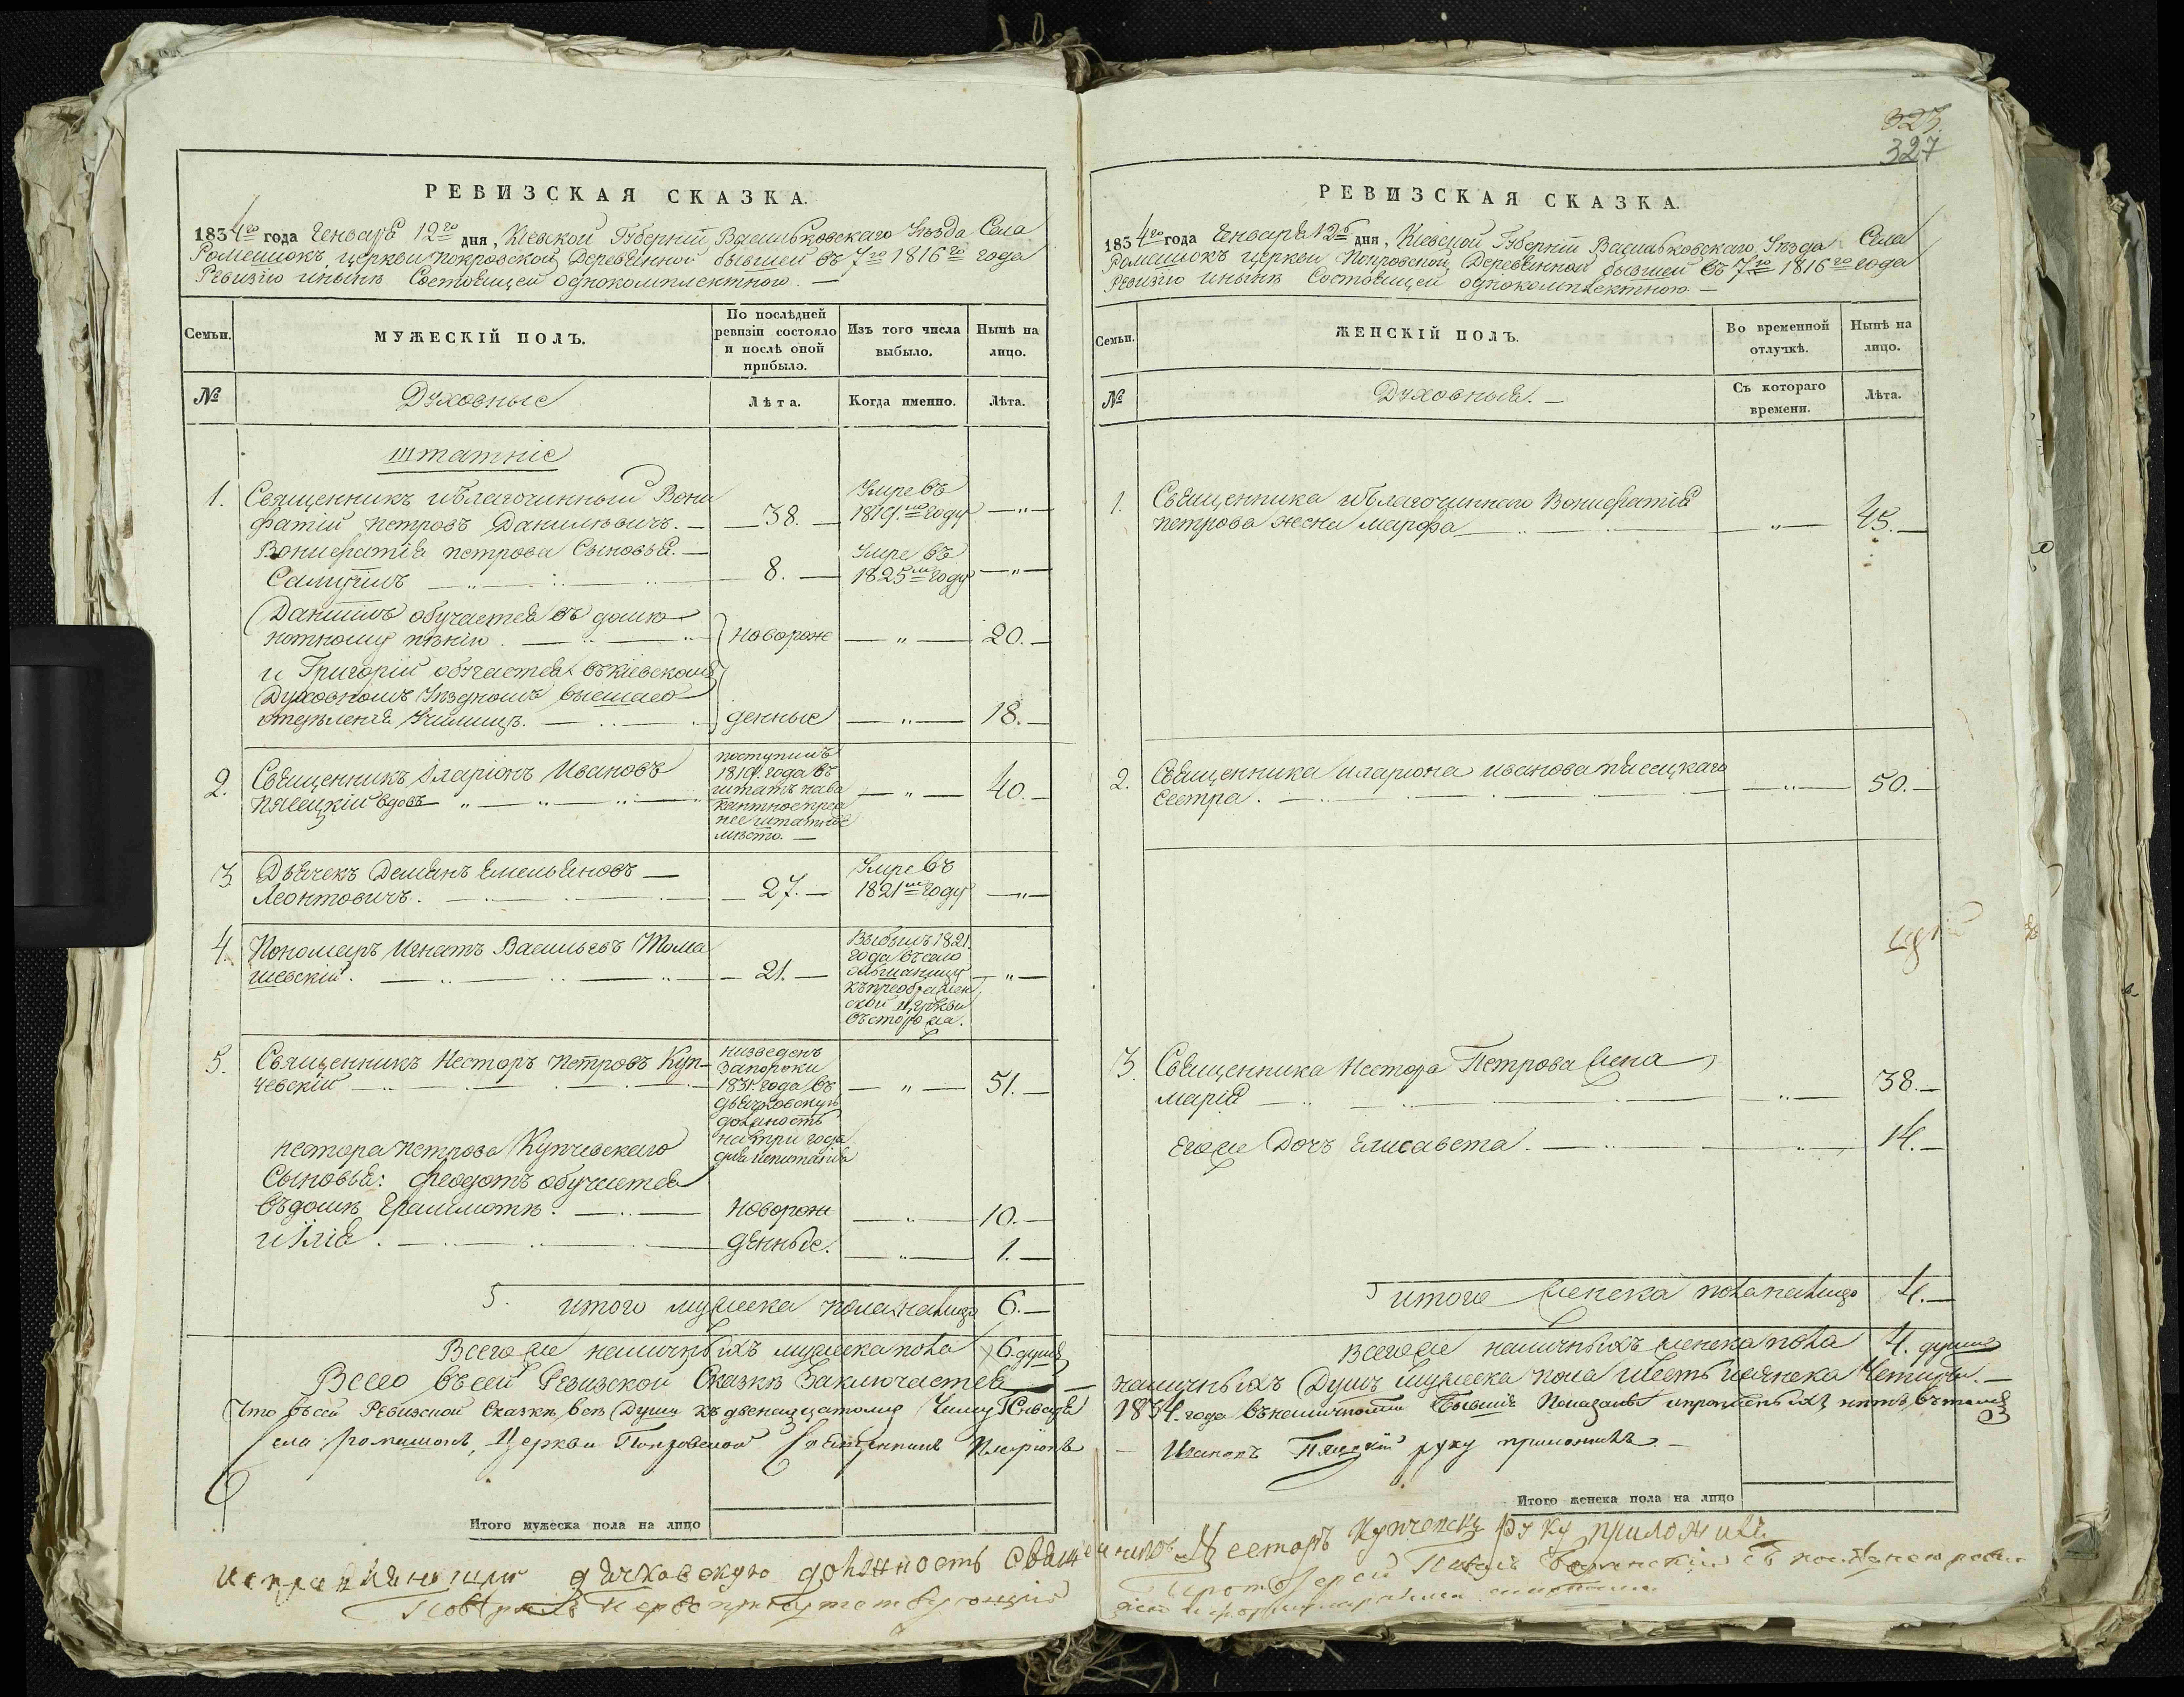 РЕВИЗСКАЯ СКАЗКА.
1834го года Генваря 12го дня, Кіевской Губерніи Васильковскаго Уезда Села
Ромашокъ церкви Покровской Деревянной бывшей въ 7ю 1816го года
Ревизію инынѣ Состоящей однокомплектною. —
Семьи.
МУЖЕСКІЙ ПОЛЪ.
По послѣдней ревизіи состояло и послѣ оной прибыло.
Изъ того числа выбыло.
Нынѣ на лицо.
№
Духовные
Лѣта.
Когда именно.
Лѣта.
штатніе
1. Священникъ иблагочинный Вони
фатій петровъ Данилѣвичъ. — 38. — Умре въ 1819.мъ году — „ —
Вонифатія петрова Сыновья. —
Самуилъ — 8. — Умре въ 1825мъ году — „ —
Даниилъ обучается въ дому
нотному пѣнію. — новорож — „ — 20. —
и Григорій обучается въкіевскомъ
Духовномъ Уѣздномъ высшаго
отдѣленія Училищѣ. — денные — „ — 18. —
2. Священникъ Іларіонъ Ивановъ
Пясецкій вдовъ — поступилъ 1819. года въ штатъ нава кантное пред нее штатное мѣсто. — „ — 40. —
3. Дьячекъ Демянъ Емельяновъ —
Леонтовичъ. — 27. — Умре въ 1821мъ году — „ —
4. Пономаръ Игнатъ Васильевъ Тома
шевскій. — 21. — Выбылъ 1821. года въ село ольшаницу къ преображен ской церкви въсторожа. — „ —
5. Священникъ Несторъ Петровъ Куп-
чевскій — низведенъ запороки 1831. года въ дьячковскую должность натри года для испитанія — „ — 51. —
нестора петрова Купчевскаго
Сыновья: Феодотъ обучается
въдомѣ Граммотѣ. — новорож — „ — 10. —
и Ілія. — денные. — „ — 1. —
5. итого мужеска пола налицо 6. —
Всегоже наличныхъ мужеска пола 6. душъ
Всего въсей Ревизской Сказкѣ Заключается —
Что въсей Ревизской Сказкѣ всѣ Души къ двенадцатому Числу Генваря
села Ромашокъ, Церкви Покровской Священникъ Иларіонъ
Итого мужеска пола на лицо
дячковскую должность Священникъ
325.
327
РЕВИЗСКАЯ СКАЗКА.
1834го года Генваря 12го дня, Кіевской Губерніи Васильковскаго Уѣзда Села
Ромашокъ церкви Покровской Деревянной бывшей въ 7ю 1816го года
Ревизію инынѣ Состоящей однокомплектною. —
Семьи.
ЖЕНСКІЙ ПОЛЪ.
Во временной отлучкѣ.
Нынѣ на лицо.
№
Духовныя. —
Съ котораго времени.
Лѣта.
1. Священника иблагочиннаго Вонифатія
петрова жена марфа — „ — 45. —
2. Священника иларіона иванова пясецкаго
Сестра. — „ — 50. —
3. Священника Нестора Петрова жена
марія — „ — 38. —
Егоже Дочъ Елисавета. — „ — 14. —
итого женска пола налицо 4. —
Всегоже наличныхъ женска пола 4. душъ
наличныхъ Душъ мужеска пола шесть иженска Четыри. —
1834. года въналичности Бывшія Показаны ипрописныхъ нѣтъ втомъ
— Ивановъ Пясецкій руку приложилъ. —
Итого женска пола на лицо
Несторъ Купчевскій руку приложилъ
Протоіерей